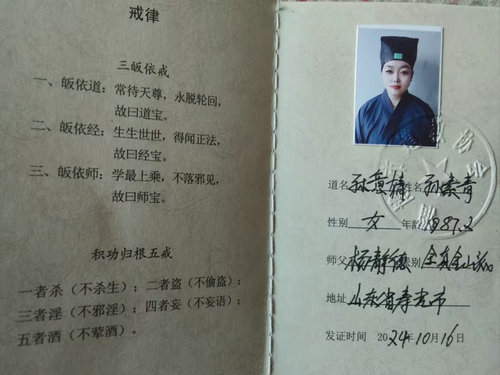 戒律
三皈依戒
一、皈依道：常待天尊，永脱轮回，
故曰道宝。
二、皈依经：生生世世，得闻正法，
故曰经宝。
三、皈依师：学最上乘，不落邪见，
故曰师宝。
积功归根五戒
一者杀（不杀生）、二者盗（不偷盗）、
三者淫（不邪淫）、四者妄（不妄语）、
五者酒（不荤酒）。
道名 孙 姓名 孙素青
性别 女 年龄 1987.2
师父 杨静德 派别 全真金山派
地址 山东省寿光市
发证时间 2024年10月16日